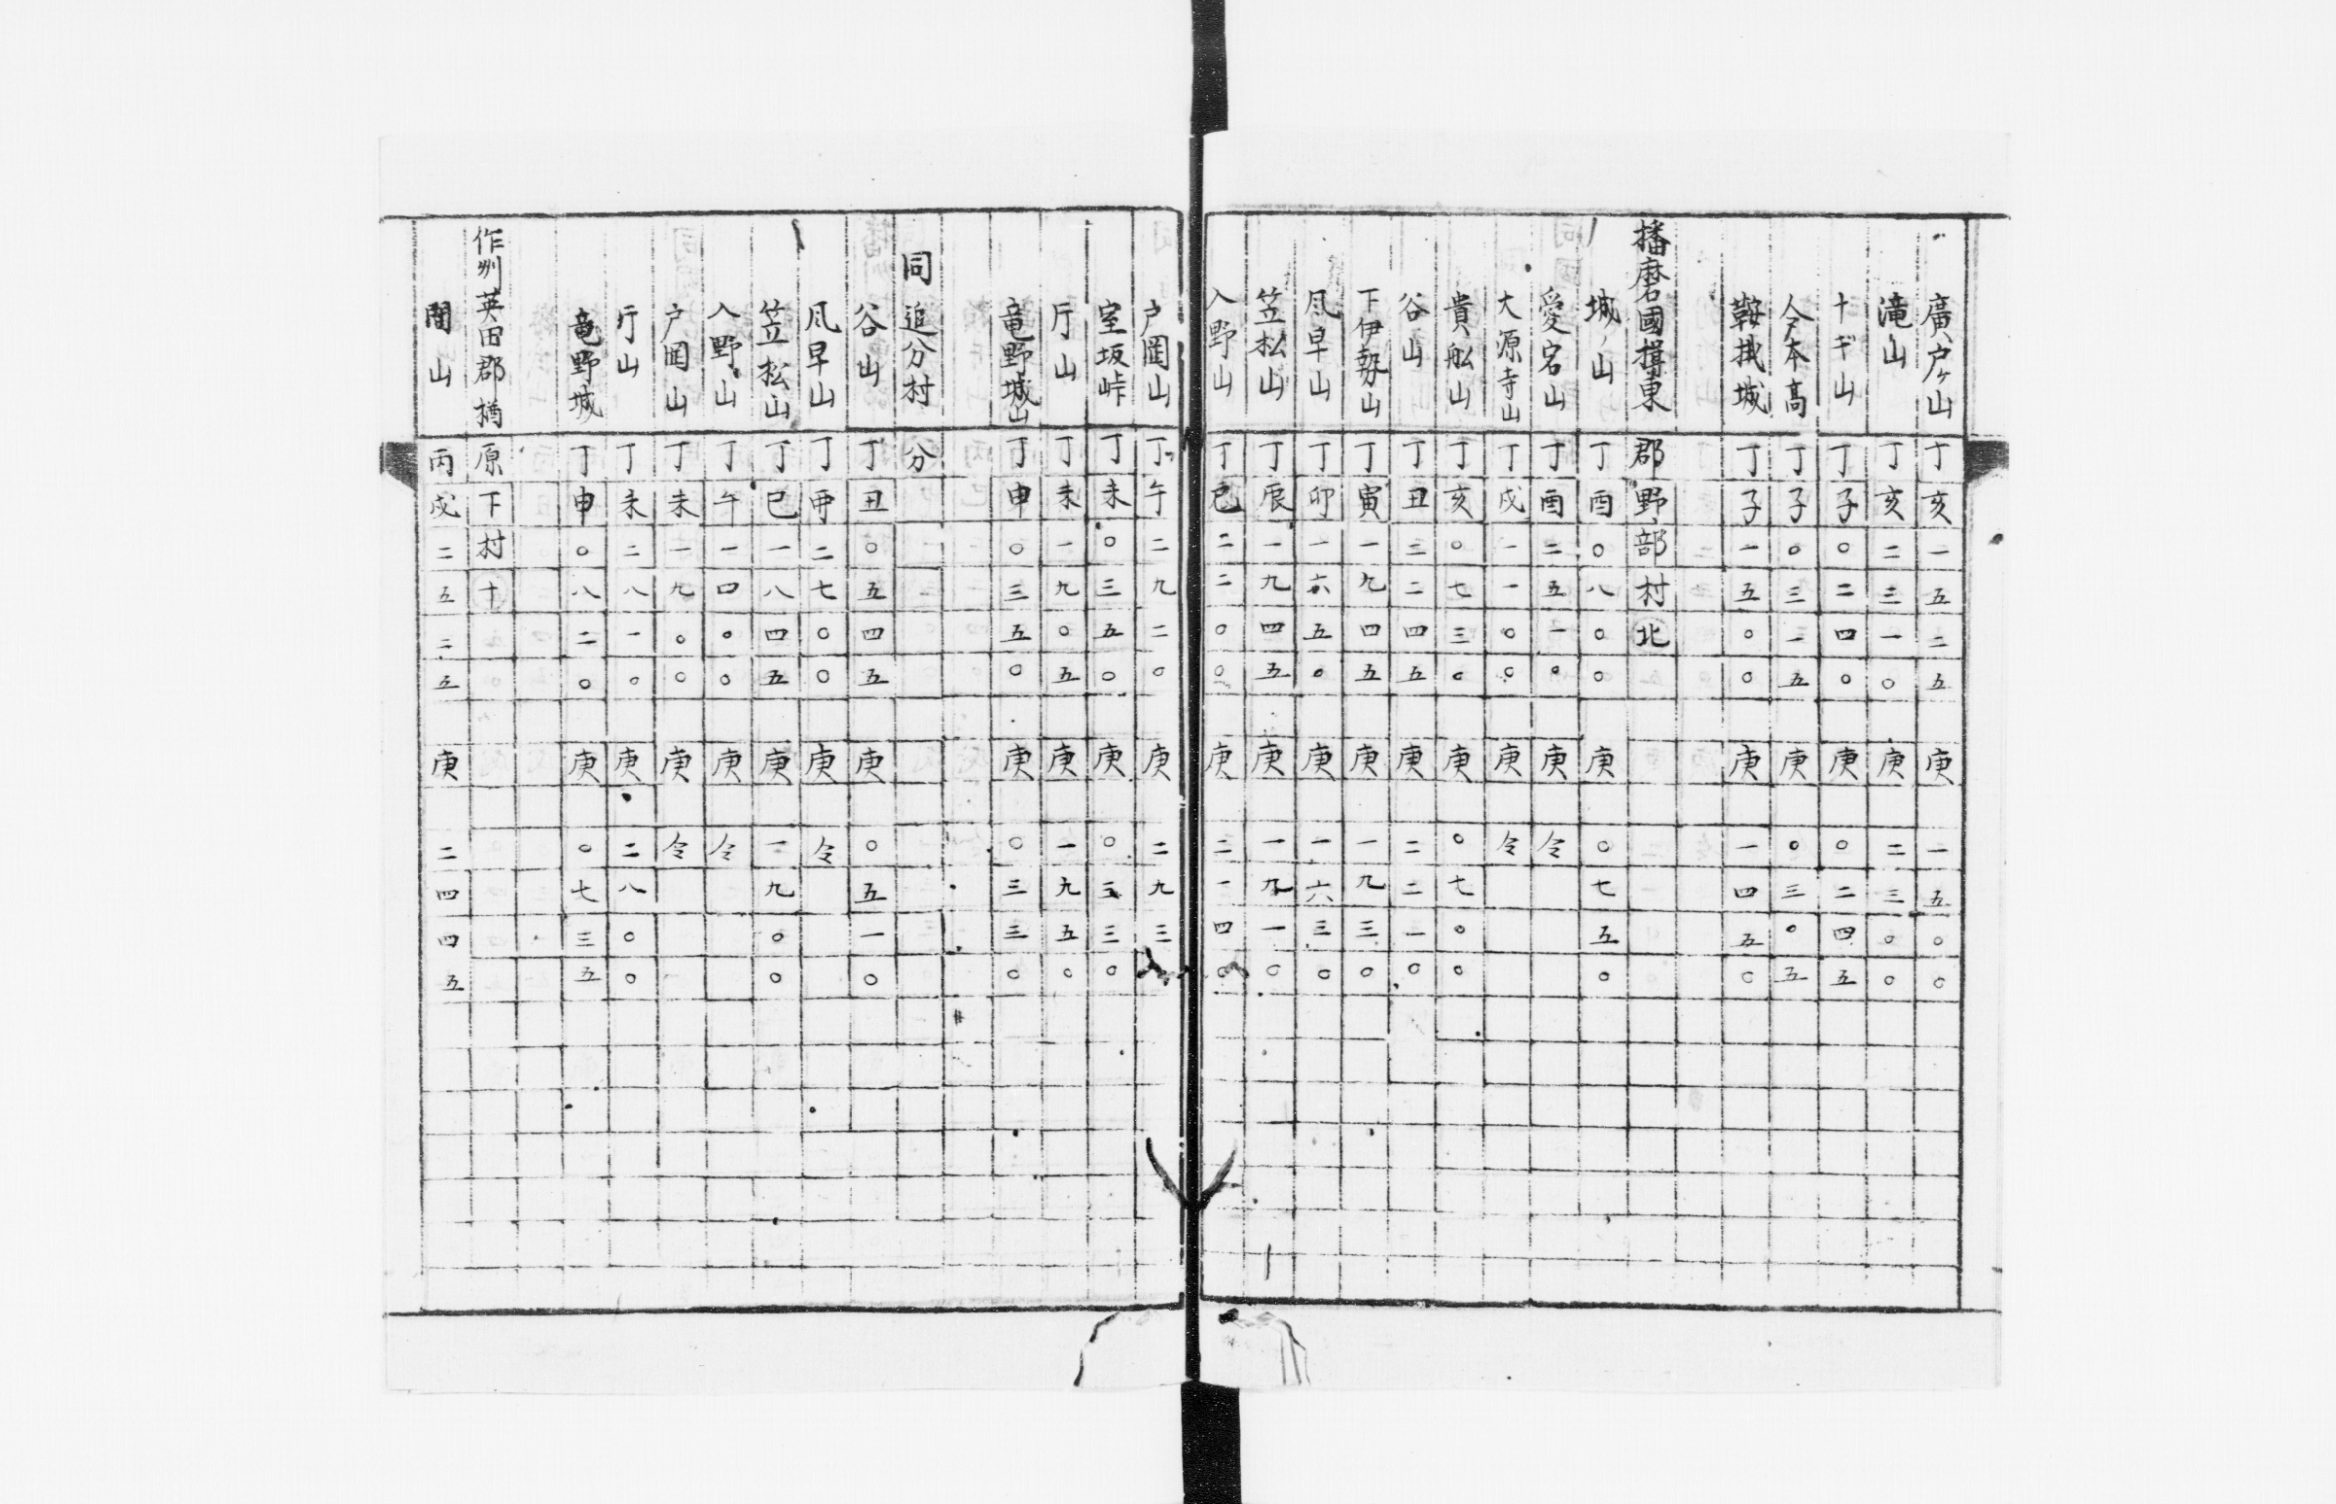 廣戸ヶ山 丁亥一五二五 庚一五〇〇
滝山 丁亥二三一〇 庚二三〇〇
十ギ山 丁子〇二四〇 庚〇二四五
今戸本高 丁子〇三一五 庚〇三〇五
鞍掛城 丁子一五〇〇 庚一四五〇
播磨國揖東郡野部村北
城ノ山 丁酉〇八〇〇 庚〇七五〇
愛宕山 丁酉二五一〇 庚令
大源寺山 丁戌一一〇〇 庚令
貴舩山 丁亥〇七三〇 庚〇七〇〇
谷山 丁丑二二四五 庚二二一〇
下伊勢山 丁寅一九四五 庚一九三〇
凨早山 丁卯一六五〇 庚一六三〇
笠松山 丁辰一九四五 庚一九一〇
入野山 丁巳二二〇〇 庚二一四〇
户岡山 丁午二九二〇 庚二九三
室坂峠 丁未〇三五〇 庚〇三三〇
庁山 丁未一九〇五 庚一九五〇
竜野城山 丁申〇三五〇 庚〇三三〇
同 追分村 分
谷山 丁丑〇五四五 庚〇五一〇
凨早山 丁二七〇〇 庚令
笠松山 丁巳一八四五 庚一九〇〇
入野山 丁午一四〇〇 庚令
户岡山 丁未一九〇〇 庚令
庁山 丁未二八一〇 庚二八〇〇
竜野城 丁申〇八二〇 庚〇七三五
作州英田郡楢原下村十
間山 丙戌二五二五 庚二四四五